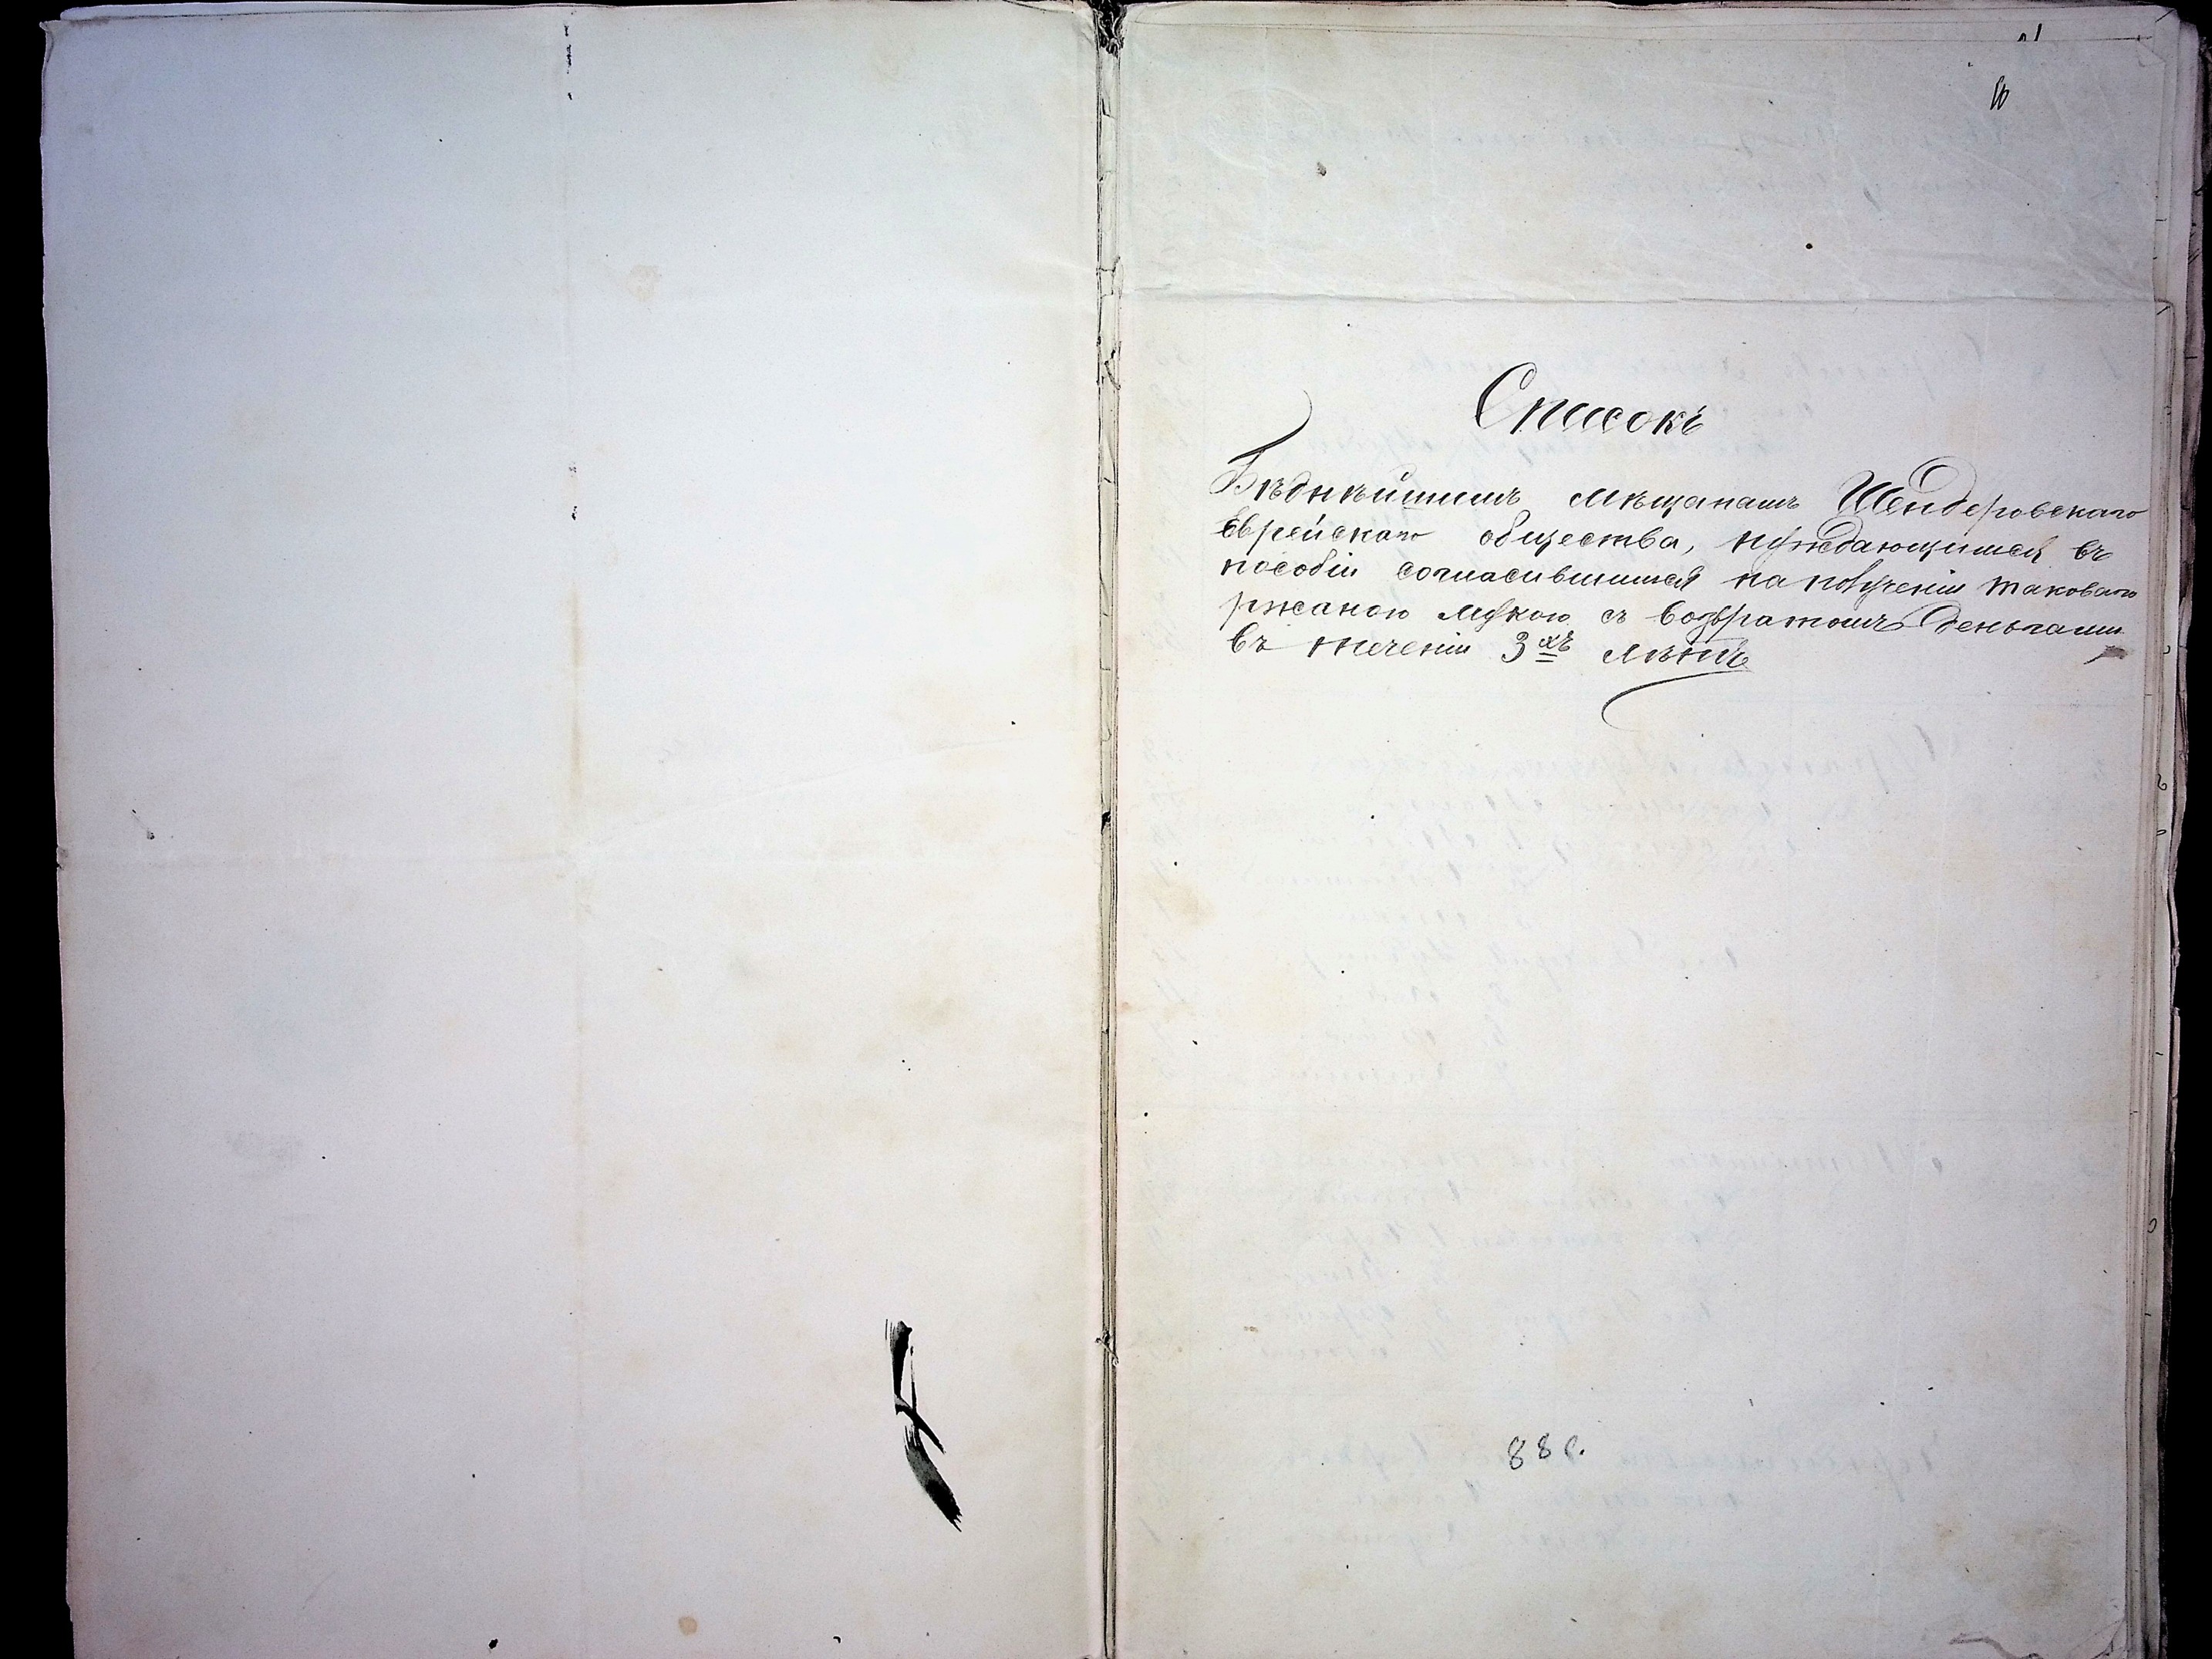 Списокъ
Бѣднѣйшимъ мѣщанамъ Шендеровскаго
Еврейскаго общества, нуждающимся въ
пособіи согласившимся на полученіи таковаго
ржаною мукою съ возвратомъ деньгами
въ теченіи 3хъ лѣтъ